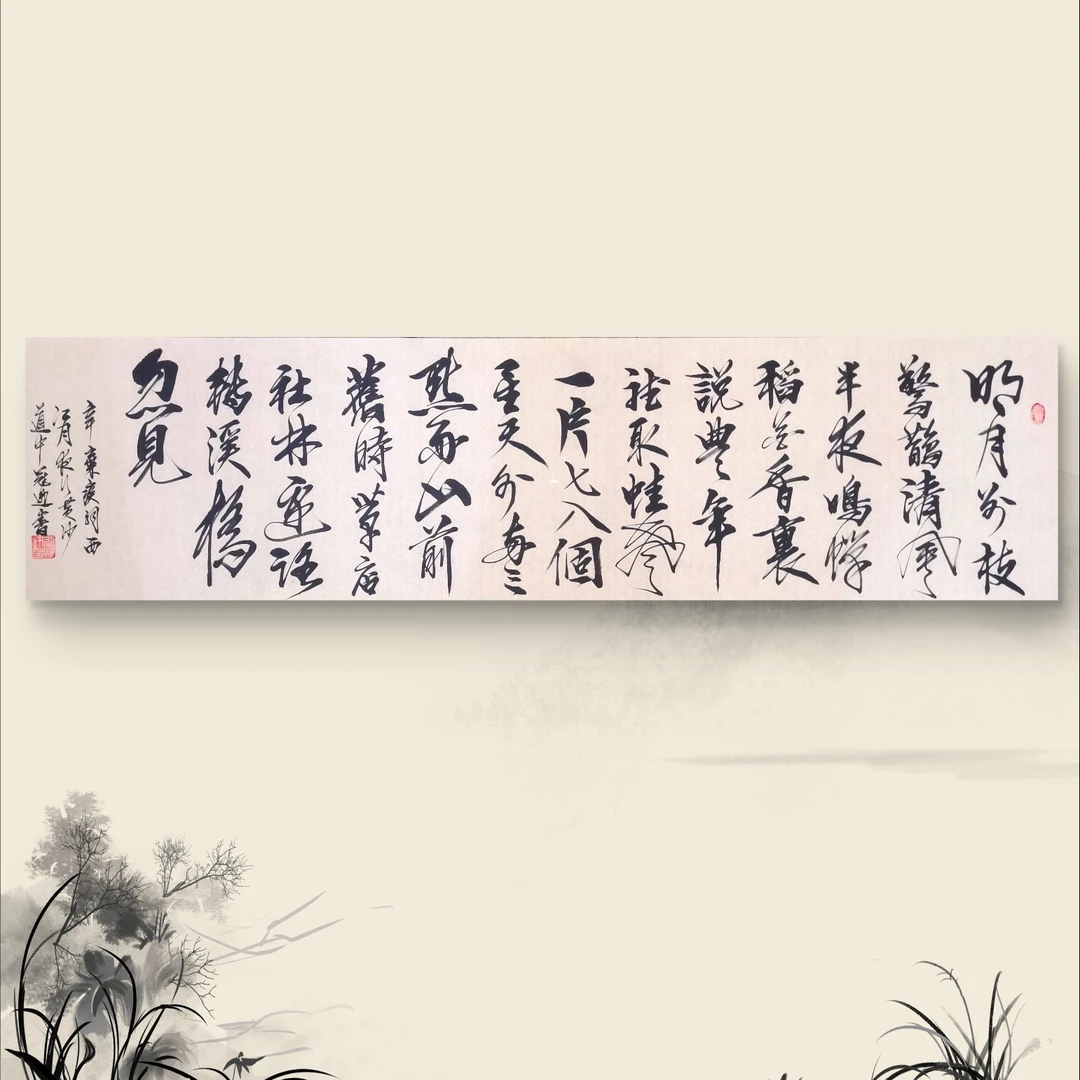 明月别枝
驚鵲清風
半夜鳴蟬
稻花香裏
説豐年
聽取蛙聲
一片七八個
星天外兩三
點雨山前
舊時茅店
社林邊路
轉溪橋
忽見
辛棄疾詞西
江月夜行黄沙
道中 書